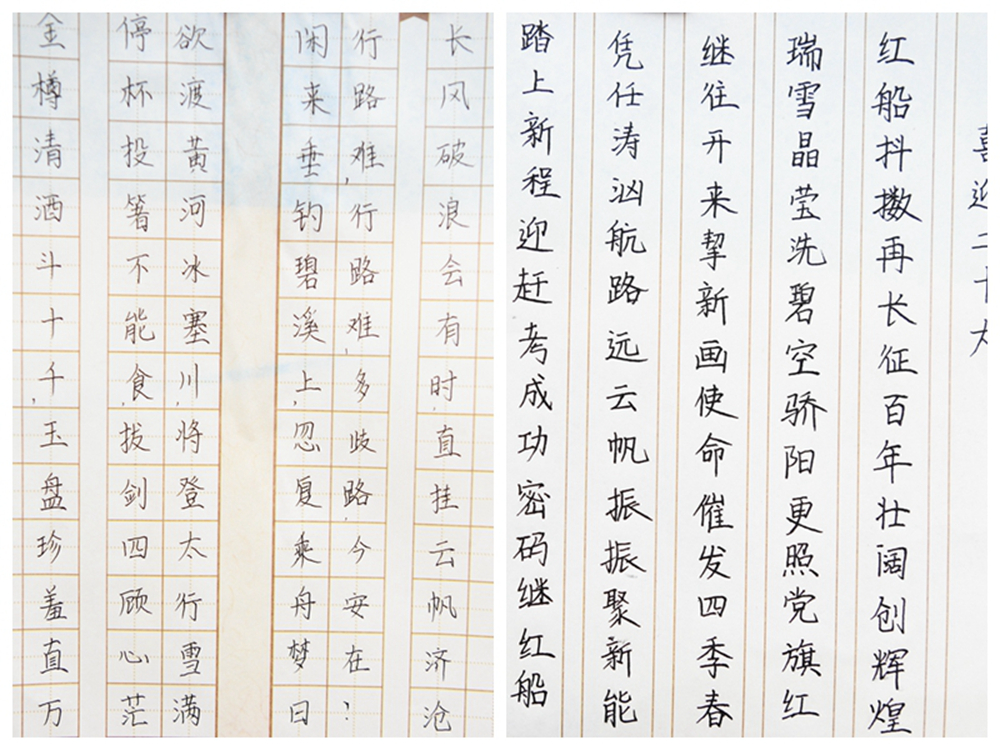 金樽清酒斗十千，玉盘珍羞直万
停杯投箸不能食，拔剑四顾心茫
欲渡黄河冰塞川，将登太行雪满
闲来垂钓碧溪上，忽复乘舟梦日
行路难，行路难，多歧路，今安在？
长风破浪会有时，直挂云帆济沧
喜迎二十大
红船抖擞再长征百年壮阔创辉煌
瑞雪晶莹洗碧空骄阳更照党旗红
继往开来挈新画使命催发四季春
凭任涛汹航路远云帆振振聚新能
踏上新程迎赶考成功密码继红船